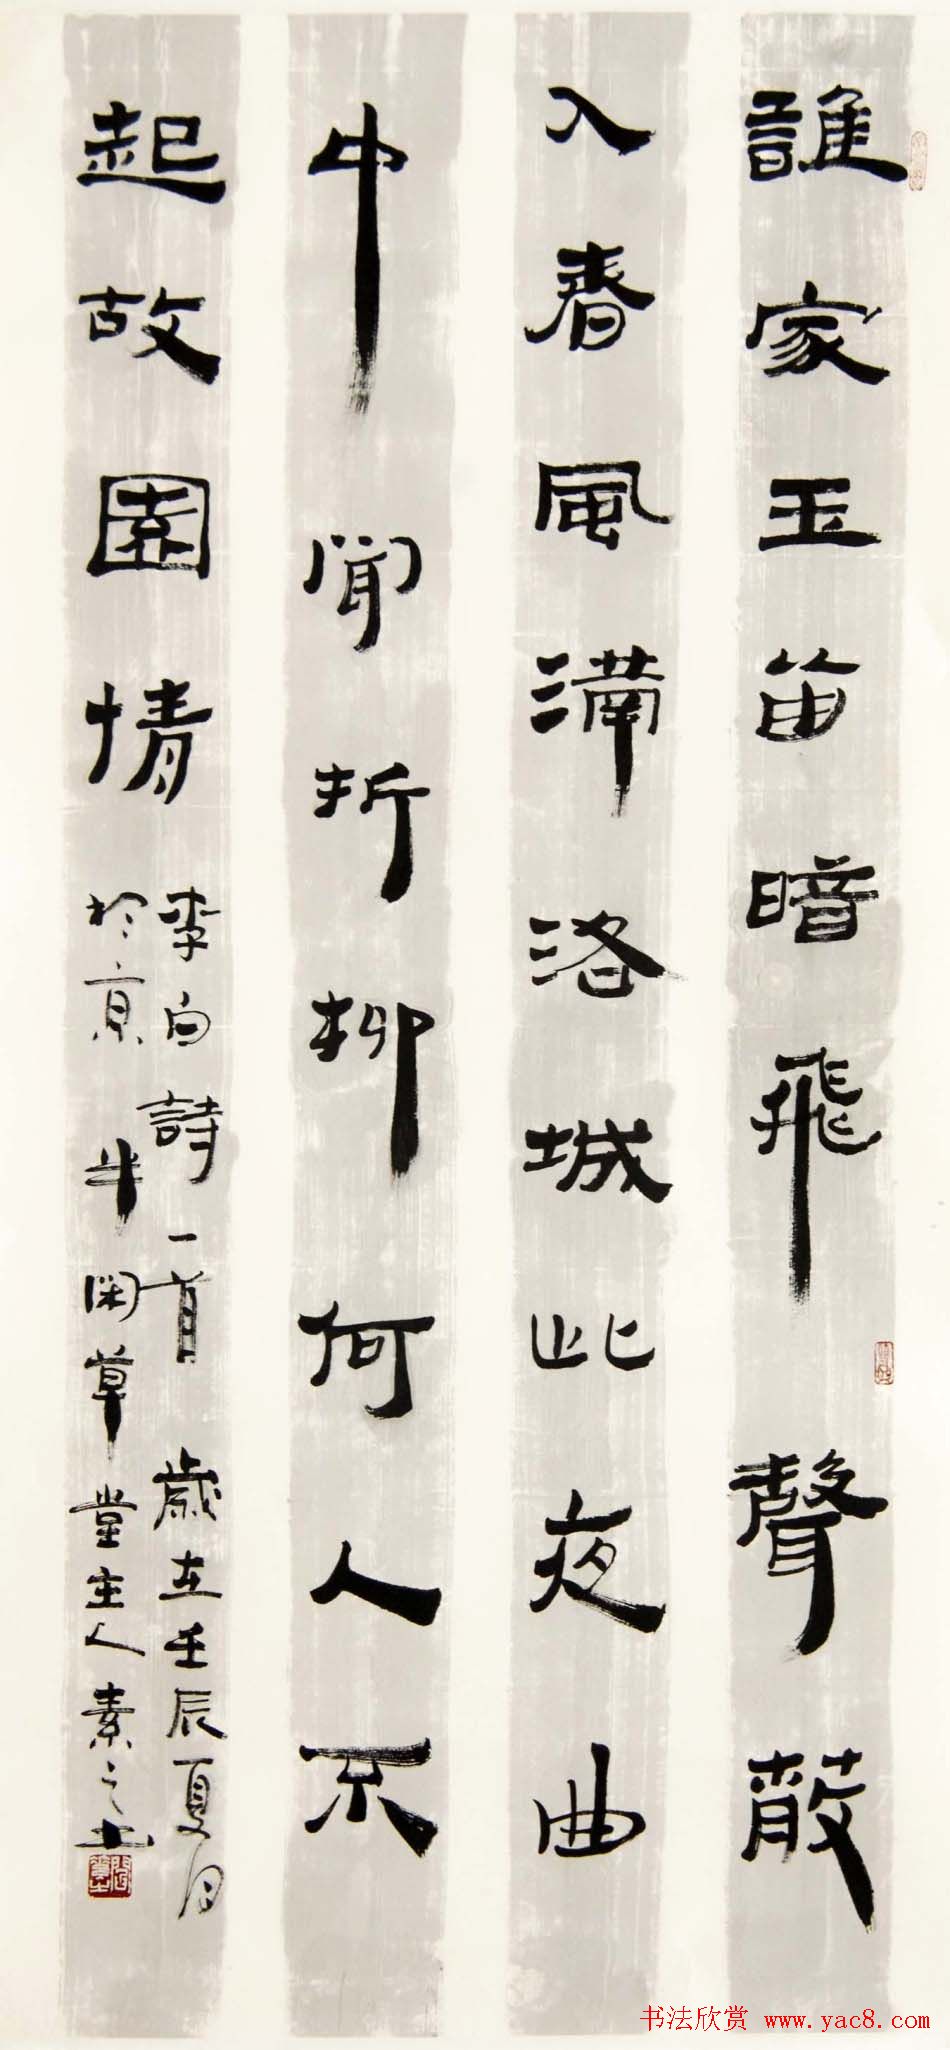 誰家玉笛暗飛聲散
入春風滿洛城此夜曲
中聞折柳何人不
起故園情
李白詩一首歲在壬辰夏月
於京半閑草堂主人素之
书法欣赏 www.yac8.com